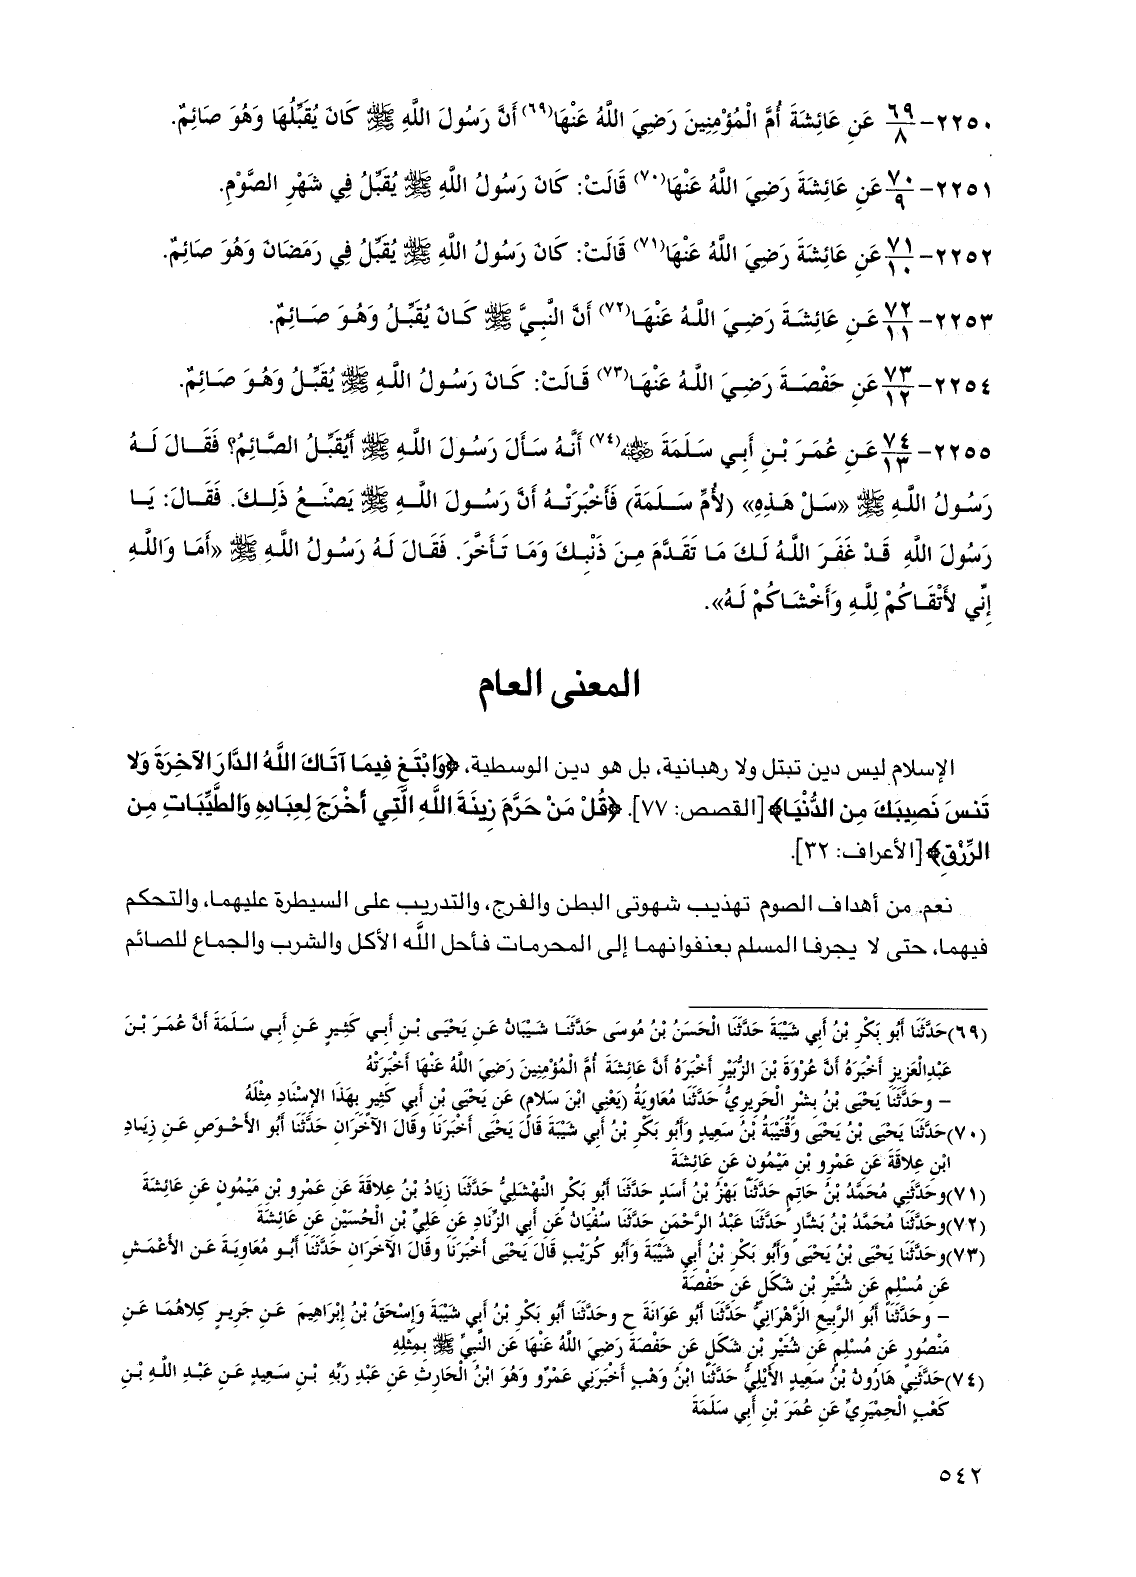 ٢٢٥٠- ٦٩/٨ عَنِ عَائِشَةَ أُمَّ الْمُؤْمِنِينَ رَضِيَ اللَّهُ عَنْهَا(٦٩) أَنَّ رَسُولَ اللَّهِ ﷺ كَانَ يُقَبِّلُهَا وَهُوَ صَائِمٌ.
٢٢٥١- ٧٠/٩ عَنِ عَائِشَةَ رَضِيَ اللَّهُ عَنْهَا(٧٠) قَالَتْ: كَانَ رَسُولُ اللَّهِ ﷺ يُقَبِّلُ فِي شَهْرِ الصَّوْمِ.
٢٢٥٢- ٧١/١٠ عَنِ عَائِشَةَ رَضِيَ اللَّهُ عَنْهَا(٧١) قَالَتْ: كَانَ رَسُولُ اللَّهِ ﷺ يُقَبِّلُ فِي رَمَضَانَ وَهُوَ صَائِمٌ.
٢٢٥٣- ٧٢/١١ عَنِ عَائِشَةَ رَضِيَ اللَّهُ عَنْهَا(٧٢) أَنَّ النَّبِيَّ ﷺ كَانَ يُقَبِّلُ وَهُوَ صَائِمٌ.
٢٢٥٤- ٧٣/١٢ عَنِ حَفْصَةَ رَضِيَ اللَّهُ عَنْهَا(٧٣) قَالَتْ: كَانَ رَسُولُ اللَّهِ ﷺ يُقَبِّلُ وَهُوَ صَائِمٌ.
٢٢٥٥- ٧٤/١٣ عَنِ عُمَرَ بْنِ أَبِي سَلَمَةَ ﷺ(٧٤) أَنَّهُ سَأَلَ رَسُولَ اللَّهِ ﷺ أَيُقَبِّلُ الصَّائِمُ؟ فَقَالَ لَهُ
رَسُولُ اللَّهِ ﷺ «سَلْ هَذِهِ» (لأُمِّ سَلَمَةَ) فَأَخْبَرَتْهُ أَنَّ رَسُولَ اللَّهِ ﷺ يَصْنَعُ ذَلِكَ. فَقَالَ: يَا
رَسُولَ اللَّهِ قَدْ غَفَرَ اللَّهُ لَكَ مَا تَقَدَّمَ مِنَ ذَنْبِكَ وَمَا تَأَخَّرَ. فَقَالَ لَهُ رَسُولُ اللَّهِ ﷺ «أَمَا وَاللَّهِ
إِنِّي لأَتْقَاكُمْ لِلَّهِ وَأَخْشَاكُمْ لَهُ».
المعنى العام
الإسلام ليس دين تبتل ولا رهبانية، بل هو دين الوسطية، ﴿وَابْتَغِ فِيمَا آتَاكَ اللَّهُ الدَّارَ الآخِرَةَ وَلا
تَنسَ نَصِيبَكَ مِن الدُّنْيَا﴾ [القصص: ٧٧]. ﴿قُلْ مَنْ حَرَّمَ زِينَةَ اللَّهِ الَّتِي أَخْرَجَ لِعِبَادِهِ وَالطَّيِّبَاتِ مِن
الرِّزْقِ﴾ [الأعراف: ٣٢].
نعم. من أهداف الصوم تهذيب شهوتى البطن والفرج، والتدريب على السيطرة عليهما، والتحكم
فيهما، حتى لا يجرفا المسلم بعنفوانهما إلى المحرمات فأحل اللَّه الأكل والشرب والجماع للصائم
(٦٩)حَدَّثَنَا أَبُو بَكْرِ بْنُ أَبِي شَيْبَةَ حَدَّثَنَا الْحَسَنُ بْنُ مُوسَى حَدَّثَنَا شَيْبَانُ عَنِ يَحْيَى بْنِ أَبِي كَثِيرٍ عَنِ أَبِي سَلَمَةَ أَنَّ عُمَرَ بْنَ
عَبْدِالْعَزِيزِ أَخْبَرَهُ أَنَّ عُرْوَةَ بْنَ الزُّبَيْرِ أَخْبَرَهُ أَنَّ عَائِشَةَ أُمَّ الْمُؤْمِنِينَ رَضِيَ اللَّهُ عَنْهَا أَخْبَرَتْهُ
– وحَدَّثَنَا يَحْيَى بْنُ بِشْرٍ الْحَرِيرِيُّ حَدَّثَنَا مُعَاوِيَةُ (يَعْنِي ابْنَ سَلامٍ) عَنِ يَحْيَى بْنِ أَبِي كَثِيرٍ بِهَذَا الإِسْنَادِ مِثْلَهُ
(٧٠)حَدَّثَنَا يَحْيَى بْنُ يَحْيَى وَقُتَيْبَةُ بْنُ سَعِيدٍ وَأَبُو بَكْرِ بْنُ أَبِي شَيْبَةَ قَالَ يَحْيَى أَخْبَرَنَا وقَالَ الآخَرَانِ حَدَّثَنَا أَبُو الأَحْوَصِ عَنِ زِيَادِ
ابْنِ عِلاقَةَ عَنِ عَمْرِو بْنِ مَيْمُونٍ عَنِ عَائِشَةَ
(٧١)وحَدَّثَنِي مُحَمَّدُ بْنُ حَاتِمٍ حَدَّثَنَا بَهْزُ بْنُ أَسَدٍ حَدَّثَنَا أَبُو بَكْرٍ النَّهْشَلِيُّ حَدَّثَنَا زِيَادُ بْنُ عِلاقَةَ عَنِ عَمْرِو بْنِ مَيْمُونٍ عَنِ عَائِشَةَ
(٧٢)وحَدَّثَنَا مُحَمَّدُ بْنُ بَشَّارٍ حَدَّثَنَا عَبْدُ الرَّحْمَنِ حَدَّثَنَا سُفْيَانُ عَنِ أَبِي الزِّنَادِ عَنِ عَلِيِّ بْنِ الْحُسَيْنِ عَنِ عَائِشَةَ
(٧٣)وحَدَّثَنَا يَحْيَى بْنُ يَحْيَى وَأَبُو بَكْرِ بْنُ أَبِي شَيْبَةَ وَأَبُو كُرَيْبٍ قَالَ يَحْيَى أَخْبَرَنَا وقَالَ الآخَرَانِ حَدَّثَنَا أَبُو مُعَاوِيَةَ عَنِ الأَعْمَشِ
عَنِ مُسْلِمٍ عَنِ شُتَيْرِ بْنِ شَكَلٍ عَنِ حَفْصَةَ
– وحَدَّثَنَا أَبُو الرَّبِيعِ الزَّهْرَانِيُّ حَدَّثَنَا أَبُو عَوَانَةَ ح وحَدَّثَنَا أَبُو بَكْرِ بْنُ أَبِي شَيْبَةَ وَإِسْحَقُ بْنُ إِبْرَاهِيمَ عَنِ جَرِيرٍ كِلاهُمَا عَنِ
مَنْصُورٍ عَنِ مُسْلِمٍ عَنِ شُتَيْرِ بْنِ شَكَلٍ عَنِ حَفْصَةَ رَضِيَ اللَّهُ عَنْهَا عَنِ النَّبِيِّ ﷺ بِمِثْلِهِ
(٧٤)حَدَّثَنِي هَارُونُ بْنُ سَعِيدٍ الأَيْلِيُّ حَدَّثَنَا ابْنُ وَهْبٍ أَخْبَرَنِي عَمْرٌو وَهُوَ ابْنُ الْحَارِثِ عَنِ عَبْدِ رَبِّهِ بْنِ سَعِيدٍ عَنِ عَبْدِ اللَّهِ بْنِ
كَعْبٍ الْحِمْيَرِيِّ عَنِ عُمَرَ بْنِ أَبِي سَلَمَةَ
٥٤٢